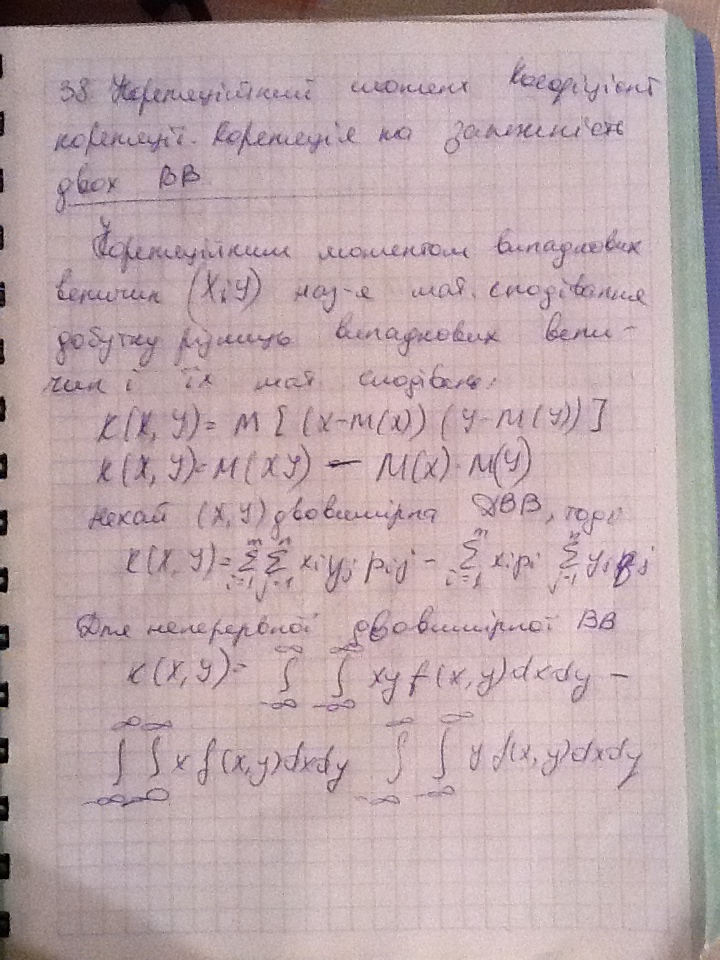 38 Кореляційний момент коефіцієнт
кореляції. Кореляція та залежність
двох ВВ
Кореляційним моментом випадкових
величин (X,Y) наз-є мат. сподівання
добутку випадкових вели-
чин і їх мат сподівань.
K(x,y)= M[(x-M(x))(y-M(y))]
K(x,y)=M(xy) - M(x)·M(y)
Нехай (x,y) двовимірна ДВВ, тоді
K(x,y)=∑∑xiyj pij - ∑xipi ∑yjpj
Для неперервної двовимірної ВВ
K(x,y)= ∫∫ xyf(x,y)dxdy -
∫∫xf(x,y)dxdy ∫∫yf(x,y)dxdy